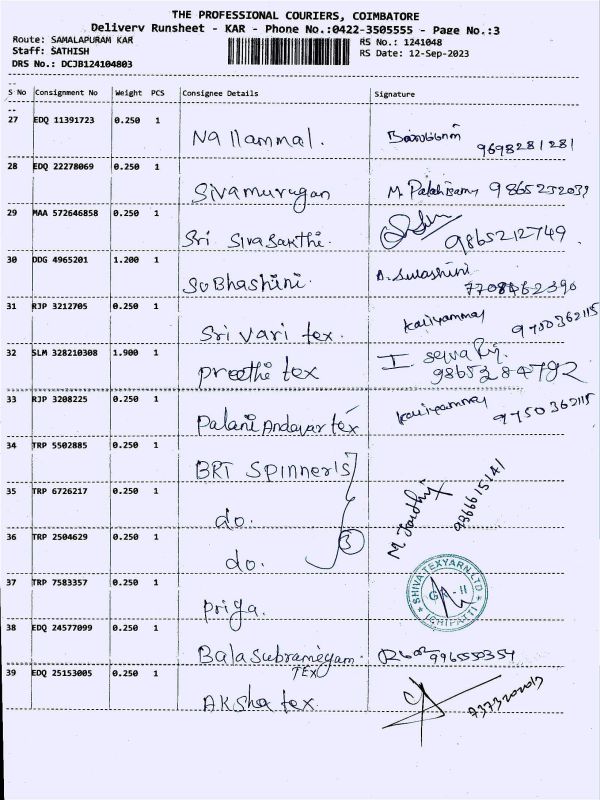 THE PROFESSIONAL COURIERS, COIMBATORE
Delivery Runsheet - KAR - Phone No.:0422-3505555 - Page No.:3
Route: SAMALAPURAM KAR
RS No.: 1241048
Staff: SATHISH
RS Date: 12-Sep-2023
DRS No.: DCJB124104803
S No Consignment No Weight PCS Consignee Details Signature
27 EDQ 11391723 0.250 1 Nallammal. 9698281281
28 EDQ 22278069 0.250 1 Sivamurugan M. Palanisamy
29 MAA 572646858 0.250 1 Sri Sivasakthi. 9865212749
30 DDG 4965201 1.200 1 SuBhashini. A. Sulashini
31 RJP 3212705 0.250 1 Sri vari tex. Kaliyammay 9750362115
32 SLM 328210308 1.900 1 Preethi tex I. Selva Rj. 9865284792
33 RJP 3208225 0.250 1 Palani Andavar tex Kaliyammay 9750362115
34 TRP 5502885 0.250 1 BRT Spinner's
35 TRP 6726217 0.250 1 do.
36 TRP 2504629 0.250 1 do. 3
M. Jordhy
37 TRP 7583357 0.250 1 Priya.
SHIVA TEXYARN LTD
ICHIPATTI
38 EDQ 24577099 0.250 1 Balasubrameyam TEX
39 EDQ 25153005 0.250 1 Aksha tex